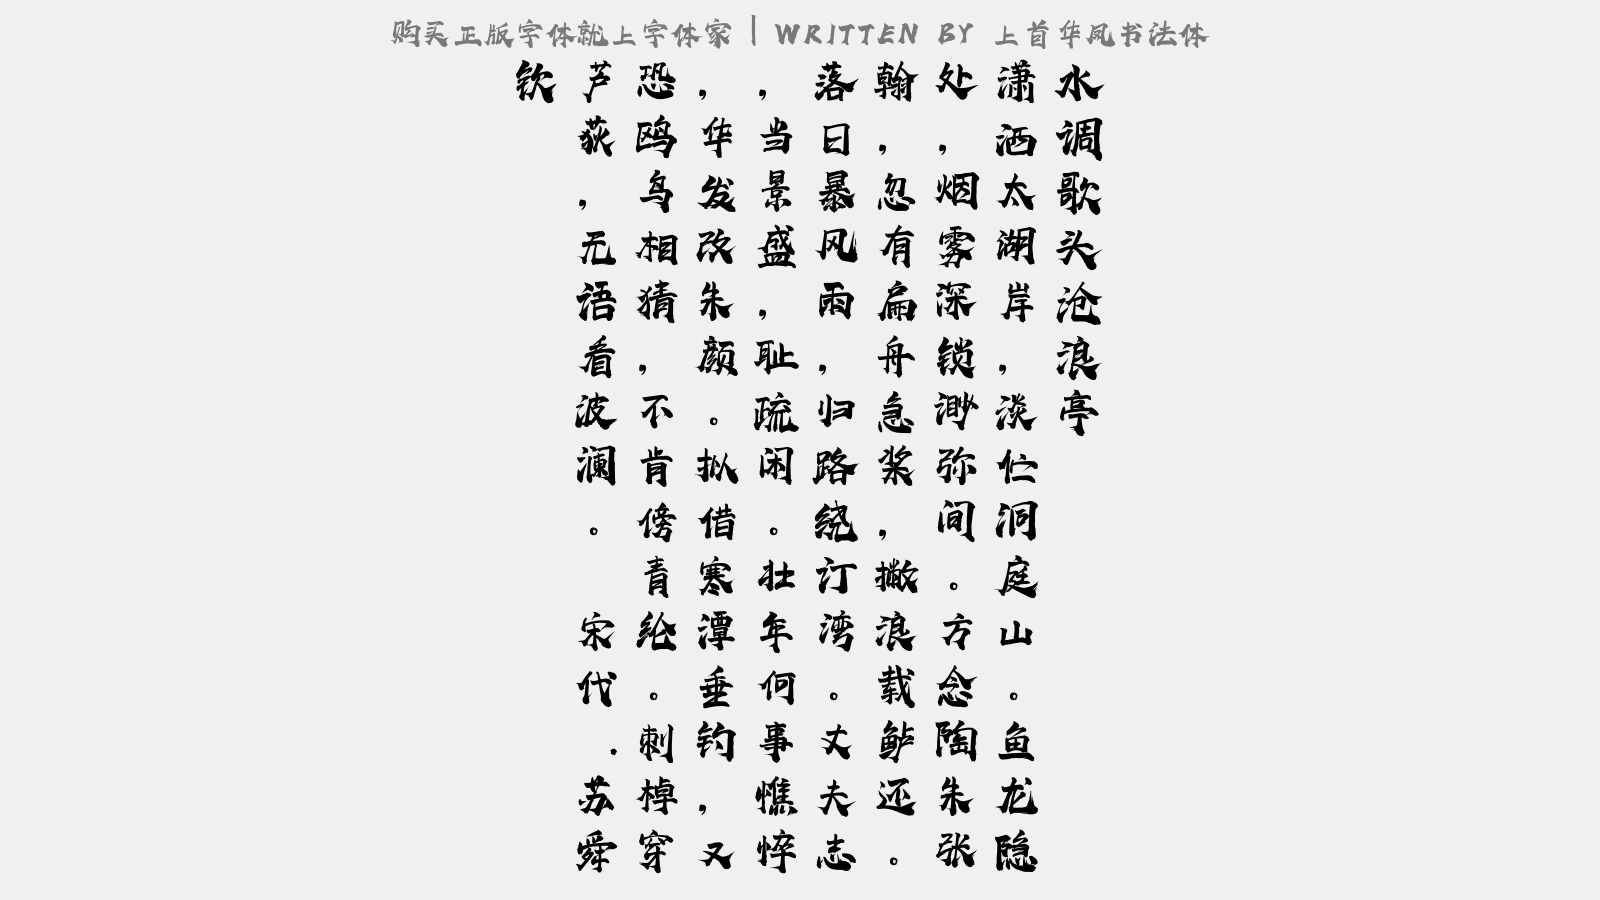 购买正版字体就上字体家 | WRITTEN BY 上首华凤书法体
水调歌头沧浪亭
潇洒太湖岸，淡伫洞庭山。鱼龙隐
处，烟雾深锁渺弥间。方念陶朱张
翰，忽有扁舟急桨，撇浪载鲈还。
落日暴风雨，归路绕汀湾。丈夫志
，当景盛，耻疏闲。壮年何事憔悴
，华发改朱颜。拟借寒潭垂钓，又
恐鸥鸟相猜，不肯傍青纶。刺棹穿
芦荻，无语看波澜。 宋代.苏舜
钦